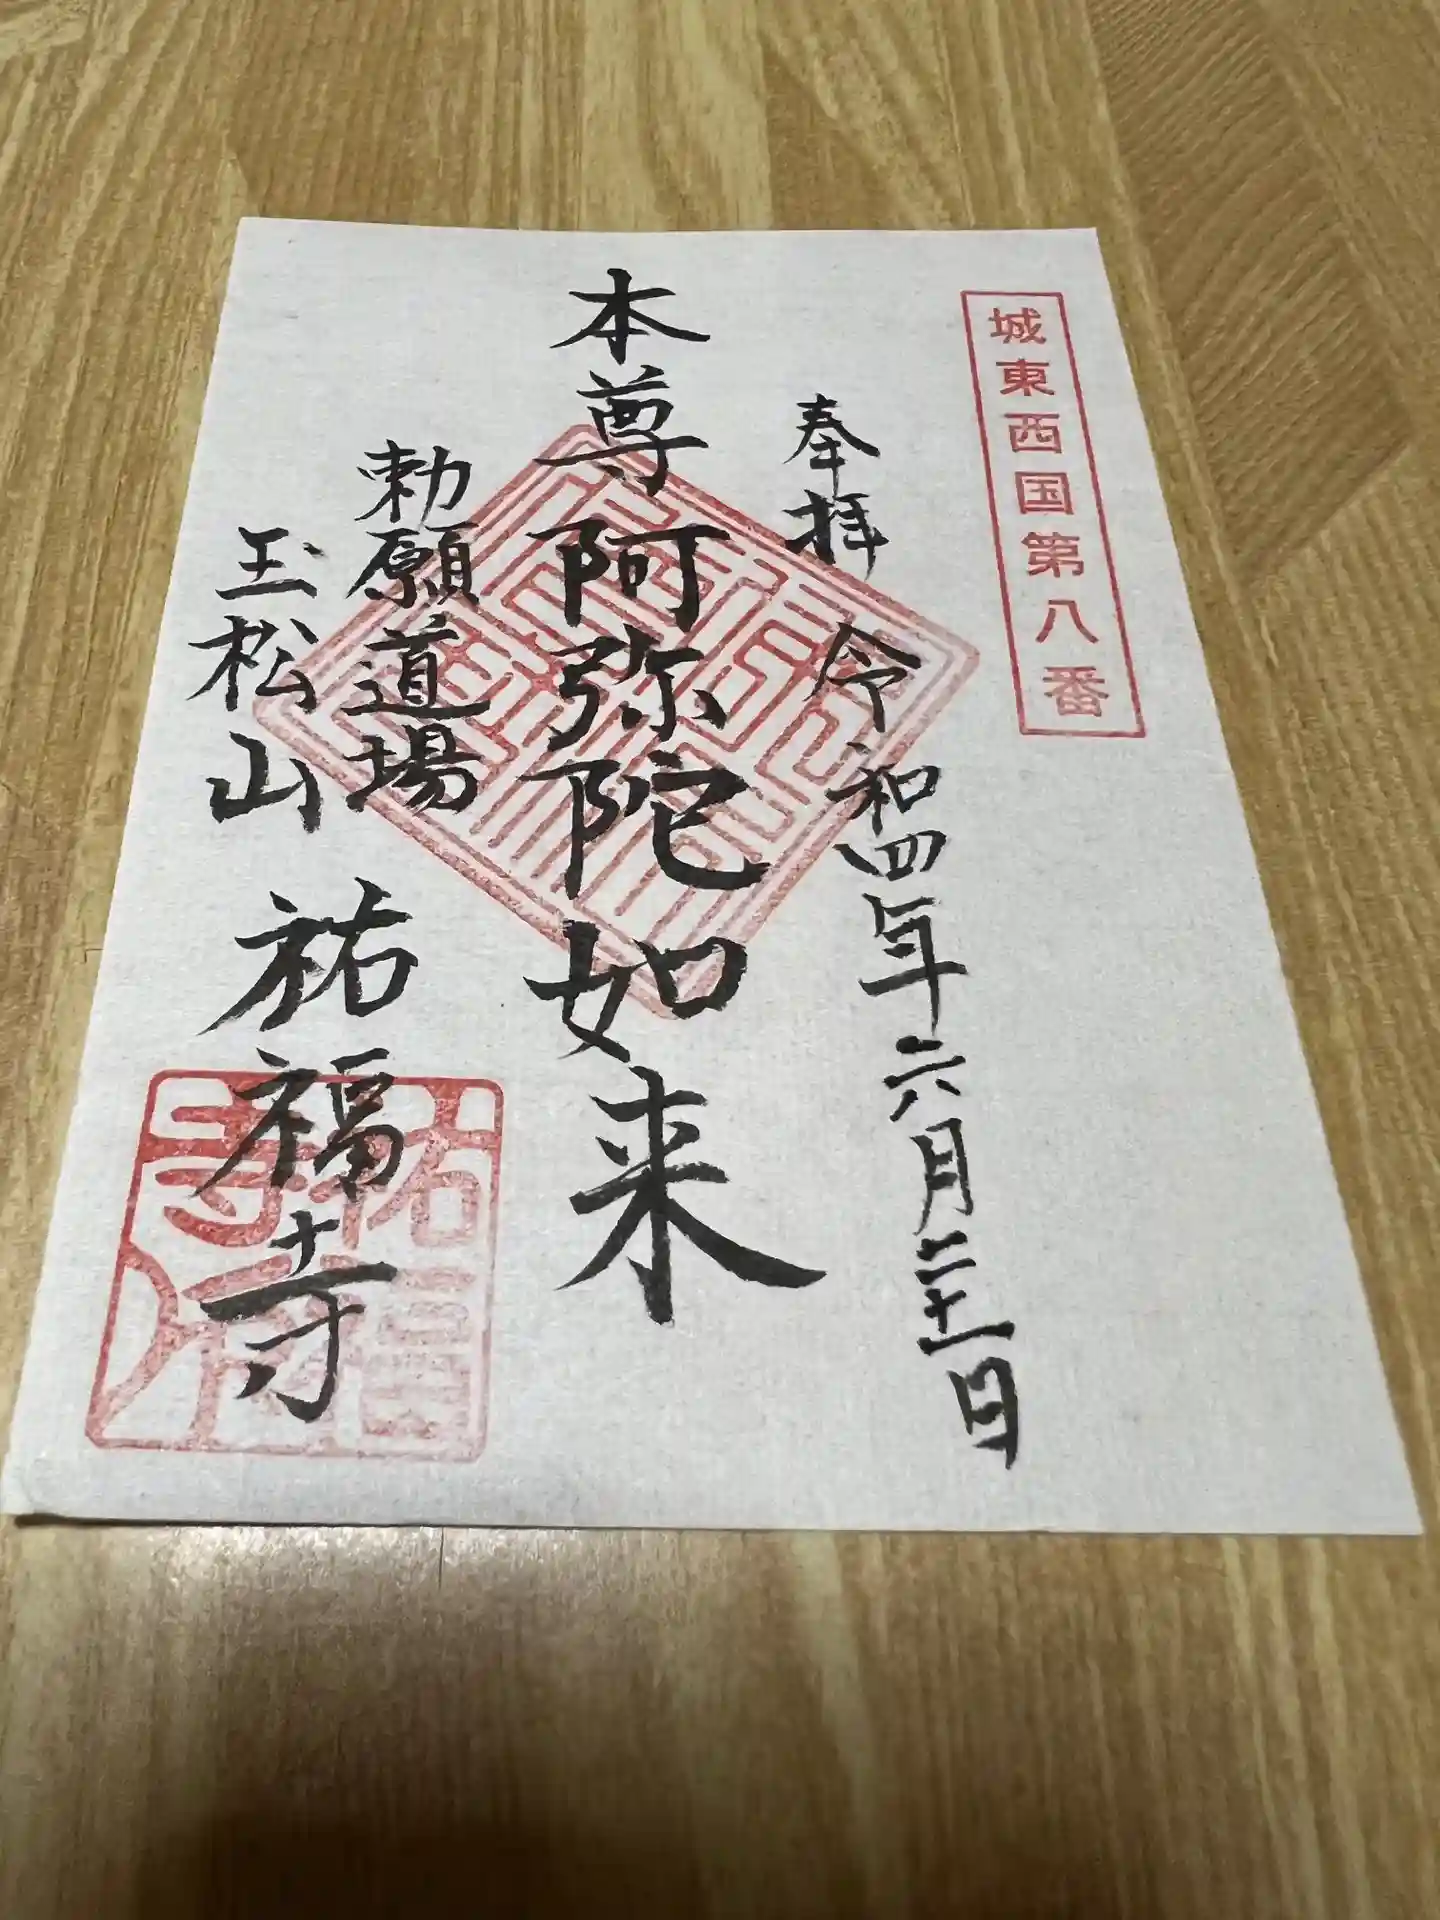 城東西国第八番
奉拝
令和四年六月二十一日
本尊 阿弥陀如来
勅願道場
玉松山 祐福寺